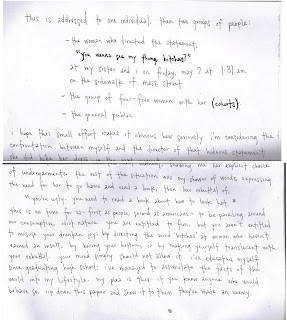 this is addressed to one individual, then two groups of people:
- the woman who directed the statement,
"you wanna see my thong, bitches?"
at my sister and i on friday, may 7 at 1:31 am
on the sidewalk of mass street.
- the group of four-five women with her (cohorts)
- the general public
i hope this small effort makes it obvious how seriously i'm considering the
confrontation between myself and the director of that hideous statement.
showing me her explicit choice
of undergarments. the rest of the situation was my shower of words expressing
the need for her to go home and read a book, then her rebuttal of:
"you're ugly. you need to read a book about how to look hot."
this is no time for us - first as people, second as americans - to be parading around
our consumption. while nature you are entitled to fun, but you aren't entitled
to misuse your drunken joy by directing the word 'bitches' at women who haven't
earned an insult, by baring your bottom, or by making yourself translucent with
your rebuttal. your mind simply should not allow it. i've educated myself
since graduating high school; i've managed to assimilate the facts of the
world into my lifestyle. my plea is this: if you know anyone who would
behave so, rip down this paper and show it to them. they've made an enemy.